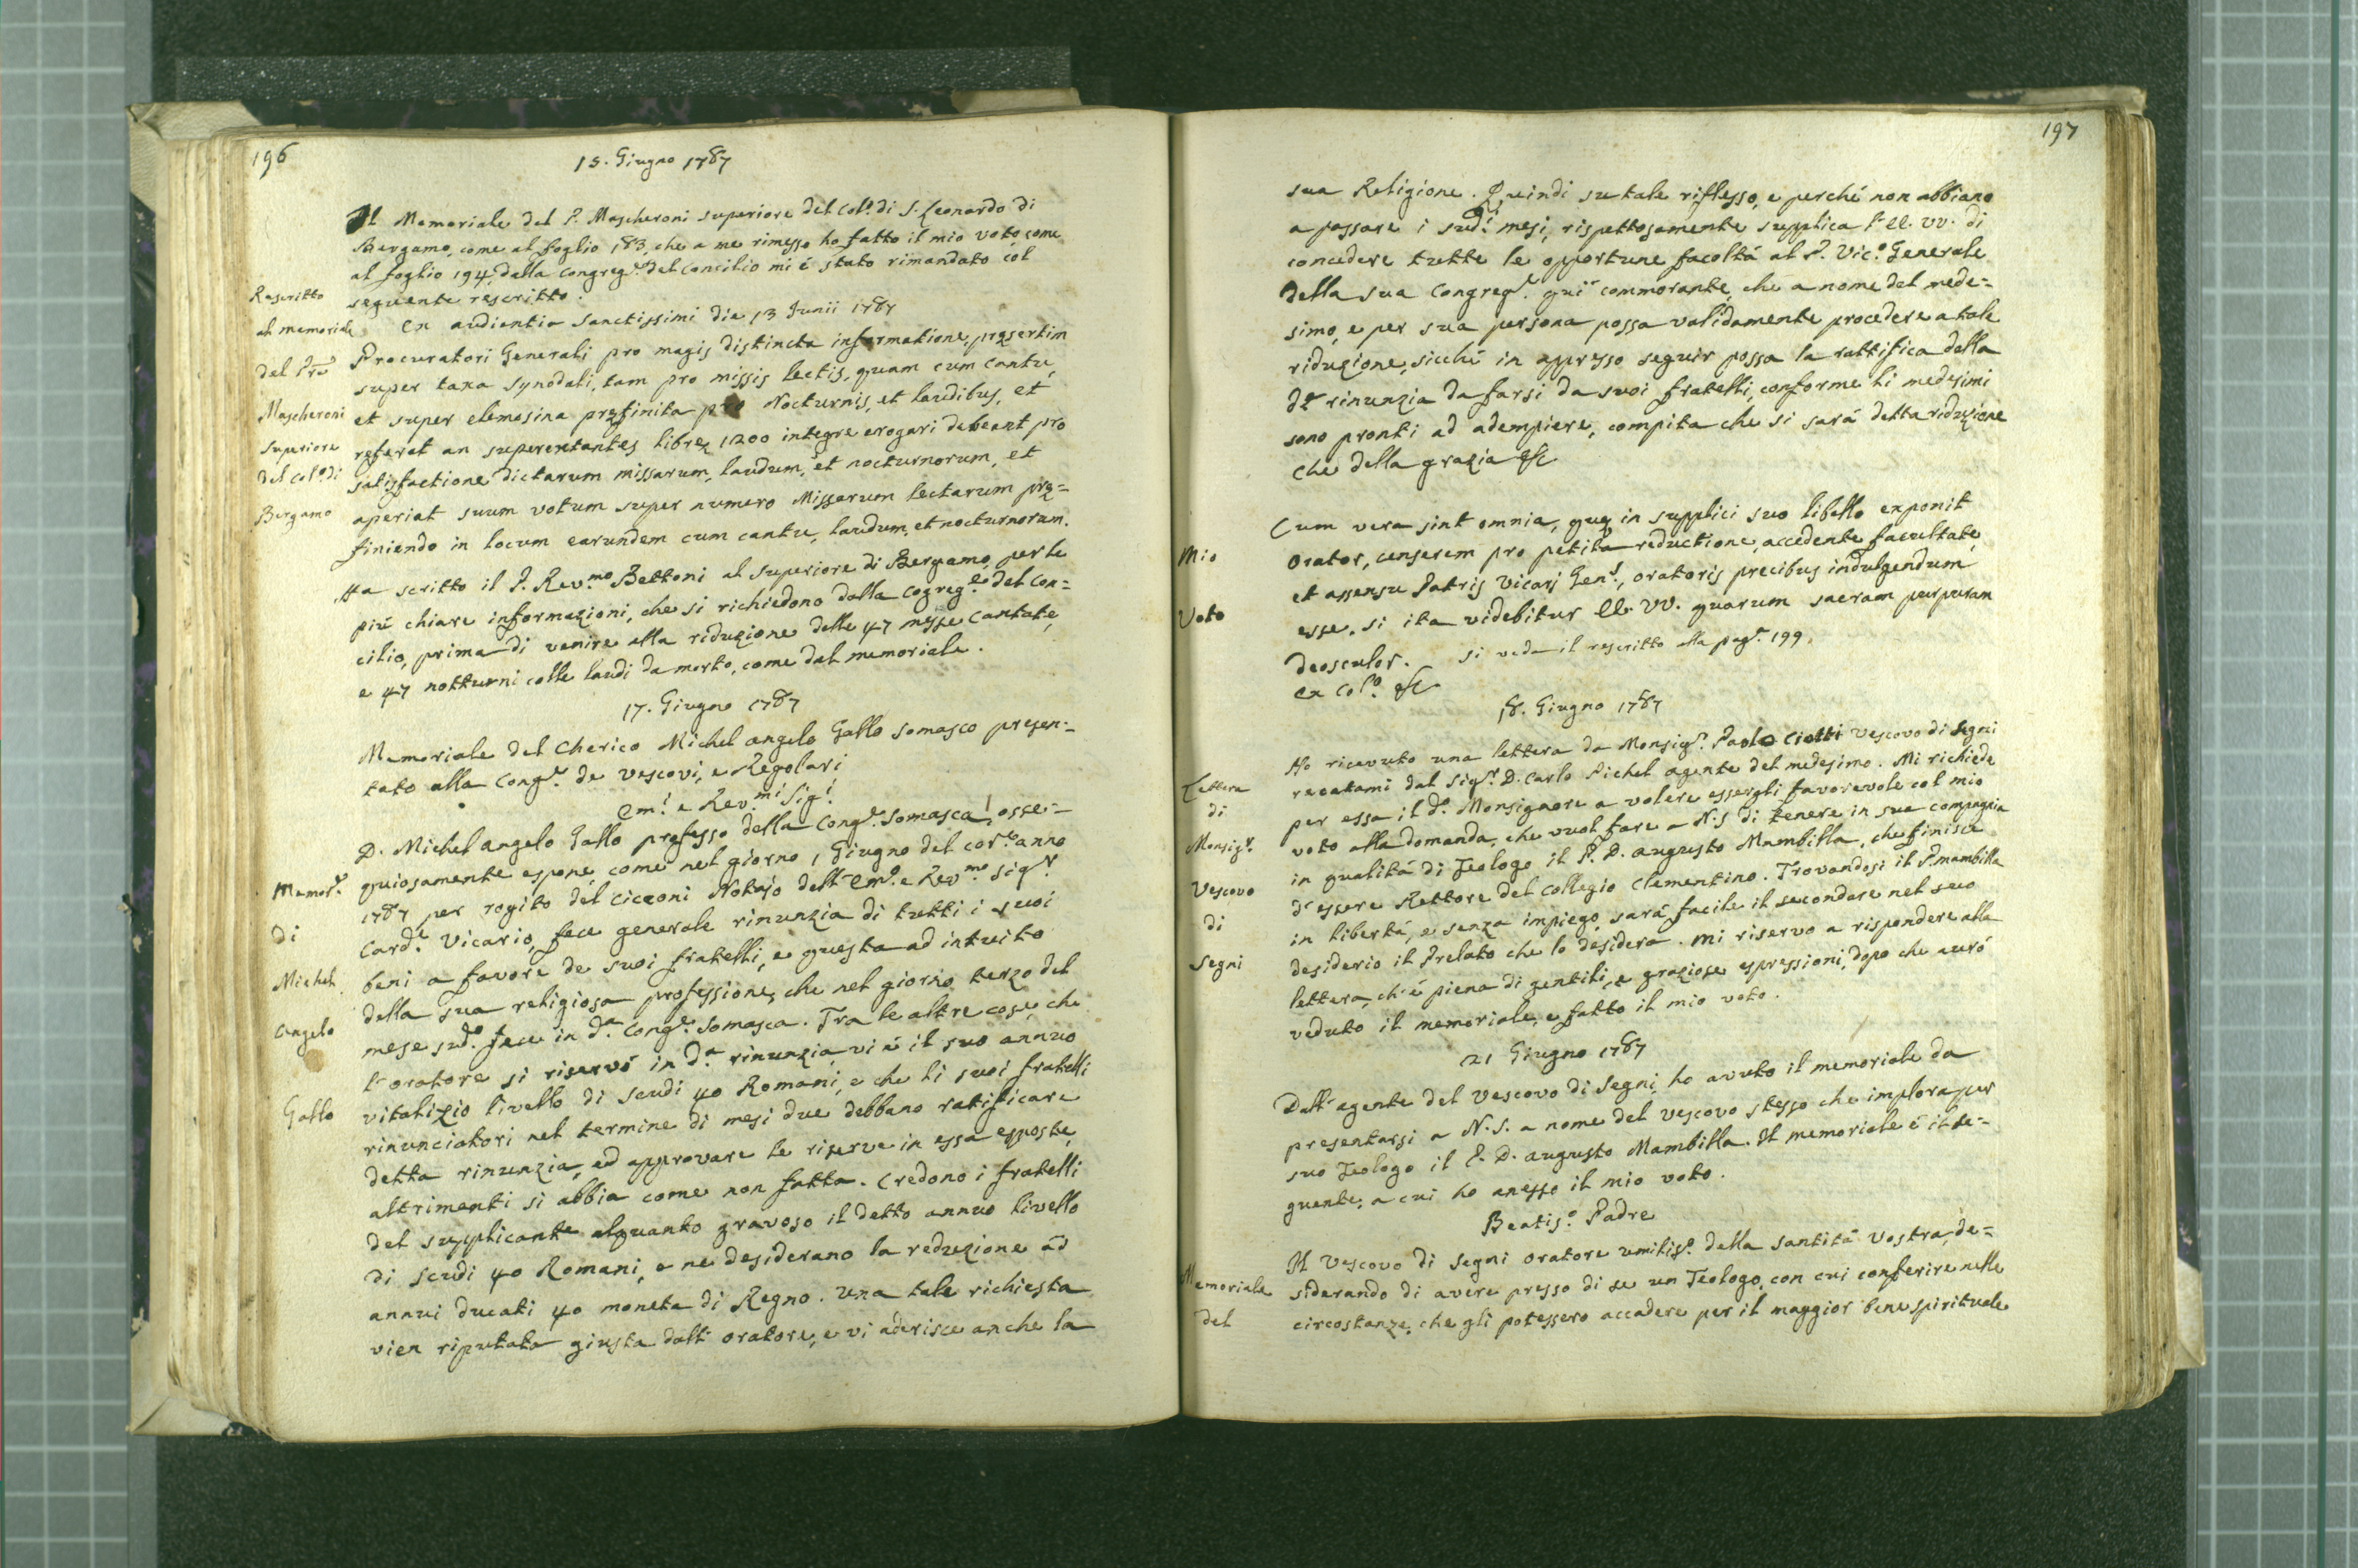 196
15. Giugno 1787
Il Memoriale del P. Mascheroni superiore del Col.º di S. Leonardo di
Bergamo, come al foglio 183, che a me rimesso ho fatto il mio voto, come
al foglio 194, dalla Congreg.e del Concilio mi é stato rimandato col
seguente rescritto.
Rescritto
al memoriale
del Pre
Mascheroni
superiore
del Col.º di
Bergamo
Ex audientia Sanctissimi die 13 Junii 1787
Procuratori Generali pro magis distincta informatione, pręsertim
super taxa synodali, tam pro missis lectis, quam cum cantu,
et super elemosina pręfinita pro Nocturnis, et laudibus, et
referat an superextantes librę 1200 integre erogari debeant pro
satisfactione dictarum missarum, laudum, et nocturnorum, et
aperiat suum votum super numero Missarum lectarum prę=
finiendo in locum earundem cum cantu, laudum, et nocturnorum.
Ha scritto il P. Rev.mo Bettoni al superiore di Bergamo, per le
piú chiare informazioni, che si richiedono dalla Cogreg.e del Con=
cilio, prima di venire alla riduzione delle 47 messe cantate,
e 47 notturni colle laudi da morto, come dal memoriale.
17. Giugno 1787
Memoriale del Cherico Michel angelo Gallo Somasco presen=
tato alla Cong.e de Vescovi, e Regolari
Em.i e Rev.mi Sig.i
Memor.e
di
Michel
Angelo
Gallo
D. Michel angelo Gallo professo della Cong.e Somasca, osse=
quiosamente espone, come nel giorno 1 Giugno del cor.e anno
1787 per rogito del Cicconi Notajo dell' Em.º e Rev.mo Sig.r
Card.e Vicario, fece generale rinunzia di tutti i suoi
beni a favore de suoi fratelli, e questa ad intuito
della sua religiosa professione, che nel giorno terzo del
mese sud.º fece in d.a Cong.e Somasca. Tra le altre cose, che
l' oratore si riservó in d.a rinunzia, vi é il suo annuo
vitalizio livello di scudi 40 Romani, e che li suoi fratelli
rinunciatori nel termine di mesi due debbano ratificare
detta rinunzia, ed approvare le riserve in essa esposte,
altrimenti si abbia come non fatta. Credono i fratelli
del supplicante alquanto gravoso il detto annuo livello
di scudi 40 Romani, e ne desiderano la reduzione ad
annui ducati 40 moneta di Regno. Una tale richiesta
vien riputata giusta dall' oratore, e vi aderisce anche la
197
sua Religione. Quindi su tale riflesso, e perché non abbiano
a passare i sud.i mesi, rispettosamente supplica l' EE. VV. di
concedere tutte le opportune facoltá al P. Vic.º Generale
della sua Congreg.e quí commorante, che a nome del mede=
simo, e per sua persona possa validamente procedere a tale
riduzione, sicché in appresso seguir possa la rattifica della
d.a rinunzia da farsi da suoi fratelli, conforme li medesimi
sono pronti ad adempiere, compita che si sará detta riduzione
che della grazia &c
Mio
Voto
Cum vera sint omnia, quę in supplici suo libello exponit
Orator, censerem pro petita reductione, accedente facultate,
et assensu Patris Vicarj Gen.s, oratoris precibus indulgendum
esse, si ita videbitur EE. VV. quarum sacram purpuram
deosculor. Si veda il rescritto alla pag.e 199.
Ex Col.º &c
18. Giugno 1787
Lettera
di
Monsig.r
Vescovo
di
Segni
Ho ricevuto una lettera da Monsig.r Paolo Ciotti Vescovo di Segni
recatami dal Sig.r D. Carlo Pichel agente del medesimo. Mi richiede
per essa il d.º Monsignore a volere essergli favorevole col mio
voto alla domanda, che vuol fare a N.S di tenere in sua compagnia
in qualitá di Teologo il P. D. augusto Mambilla, che finisce
d' essere Rettore del Collegio Clementino. Trovandosi il P. Mambilla
in libertá, e senza impiego, sará facile il secondare nel suo
desiderio il Prelato che lo desidera. Mi riservo a rispondere alla
lettera, ch' é piena di gentili, e graziose espressioni, dopo che avró
veduto il memoriale, e fatto il mio voto.
21 Giugno 1787
Dall' agente del Vescovo di Segni, ho avuto il memoriale da
presentarsi a N. S. a nome del vescovo stesso che implora per
suo Teologo il P. D. augusto Mambilla. Il memoriale é il se=
guente, a cui ho anesso il mio voto.
Beatis.º Padre
Memoriale
del
Il Vescovo di Segni oratore umilis.º della santitá Vostra, de=
siderando di avere presso di se un Teologo, con cui conferire nelle
circostanze, che gli potessero accadere per il maggior bene spirituale